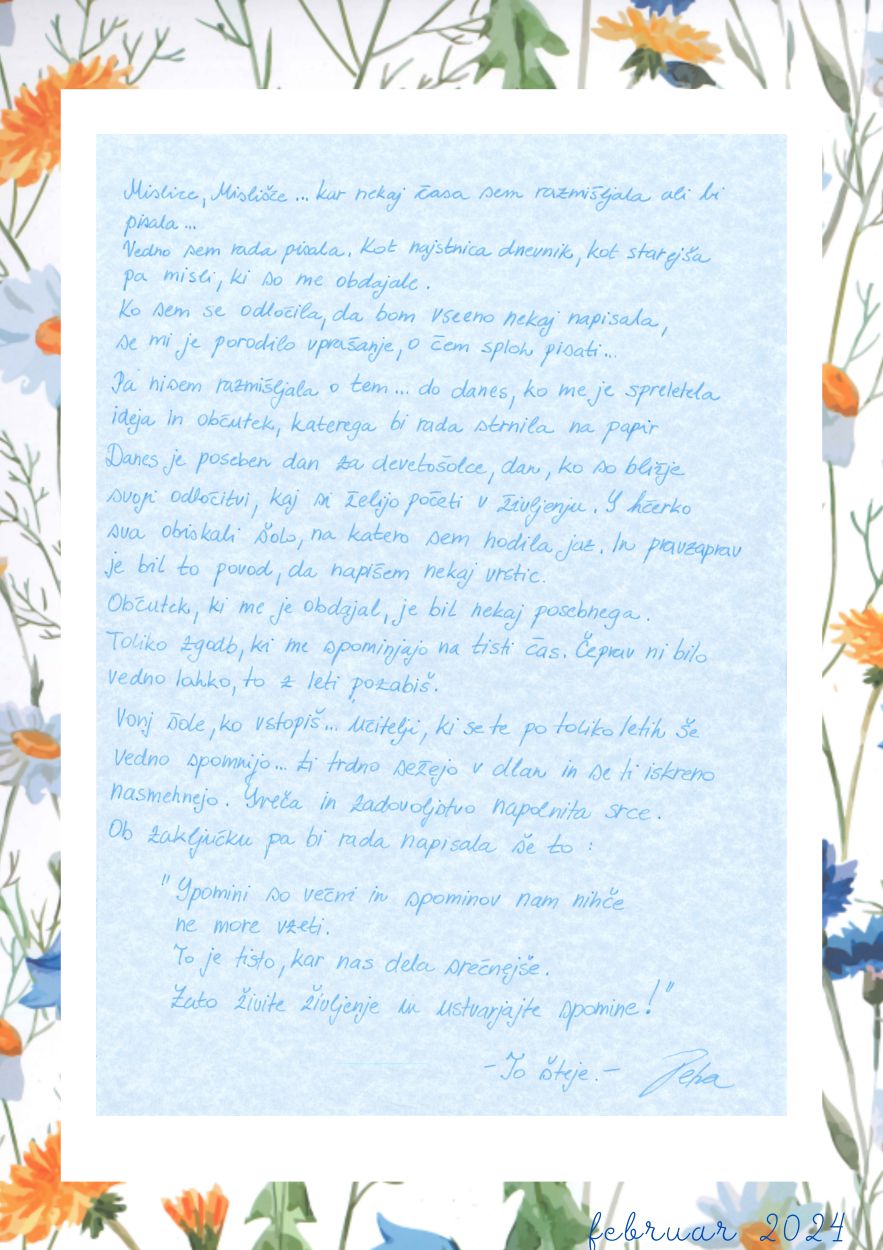 Mislice, Mislišče... kar nekaj časa sem razmišljala ali bi
pisala...
Vedno sem rada pisala. Kot najstnica dnevnik, kot starejša
pa misli, ki so me obdajale.
Ko sem se odločila, da bom vseeno nekaj napisala,
se mi je porodilo vprašanje, o čem sploh pisati...
Pa nisem razmišljala o tem... do danes, ko me je spreletela
ideja in občutek, katerega bi rada strnila na papir
Danes je poseben dan za devetošolce, dan, ko so bližje
svoji odločitvi, kaj si želijo početi v življenju. S hčerko
sva obiskali šolo, na katero sem hodila jaz. In pravzaprav
je bil to povod, da napišem nekaj vrstic.
Občutek, ki me je obdajal, je bil nekaj posebnega.
Toliko zgodb, ki me spominjajo na tisti čas. Čeprav ni bilo
vedno lahko, to z leti pozabiš.
Vonj šole, ko vstopiš... Učitelji, ki se te po toliko letih še
vedno spomnijo... ti trdno sežejo v dlan in se ti iskreno
nasmehnejo. Sreča in zadovoljstvo napolnita srce.
Ob zaključku pa bi rada napisala še to :
"Spomini so večni in spominov nam nihče
ne more vzeti.
To je tisto, kar nas dela srečnejše.
Zato živite življenje in ustvarjajte spomine!"
-To šteje.-
februar 2024